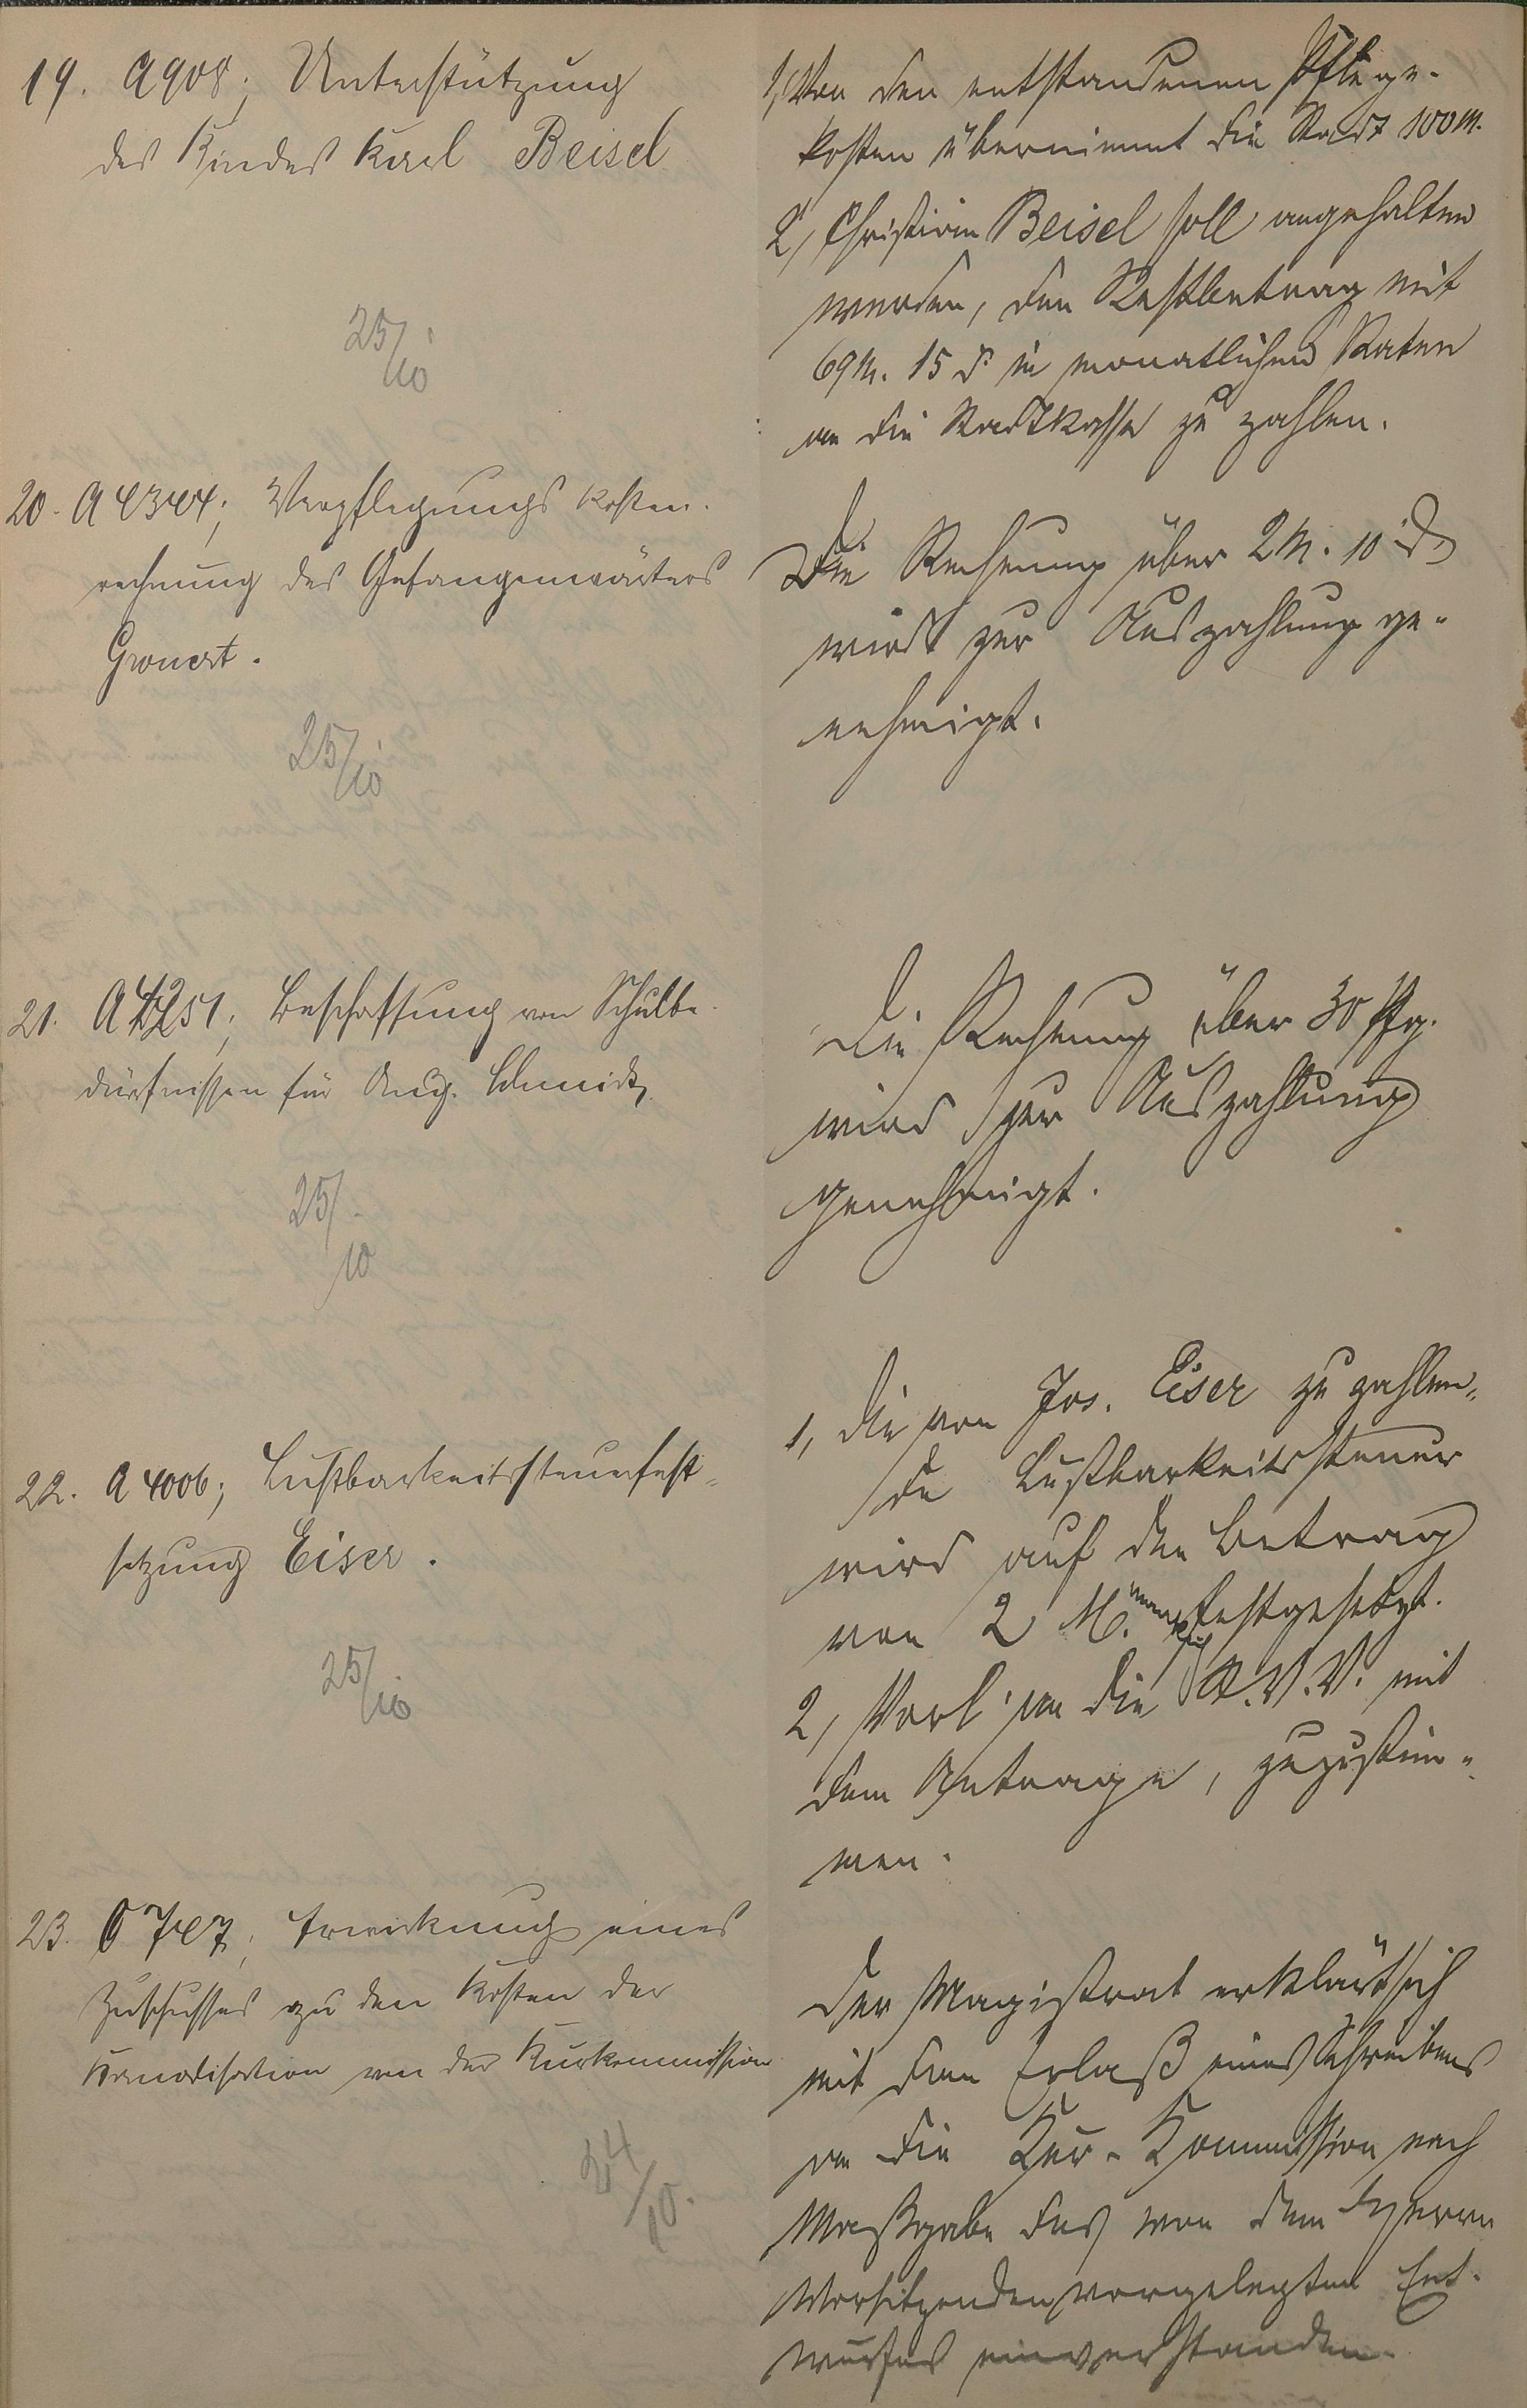 19. A 908; Unterstützung
des Kindes Karl Beisel
25/10
1, Von den entstandenen Pflege-
kosten übernimmt die Stadt 100 M.
2, Christian Beisel soll angehalten
werden, den Restbetrag mit
69 M. 15 ₰ in monatlichen Raten
an die Stadtkasse zu zahlen.
20. A 4344; Verpflegungskosten-
rechnung des Gefangenwärters
Gronert.
25/10
Die Rechnung über 2 M. 10 ₰
wird zur Auszahlung ge-
nehmigt.
21. A 4251; Beschaffung von Schulbe-
dürfnissen für Aug. Schmidt
25/10
Die Rechnung über 30 Pfg.
wird zur Auszahlung
genehmigt.
22. A 4006; Lustbarkeitssteuerfest-
setzung Eiser.
25/10
1, Die von Jos. Eiser zu zahlen-
de Lustbarkeitssteuer
wird auf den Betrag
von 2 M. festgesetzt.
2, Vorl. an die St.V.V. mit
dem Antrage, zuzustim-
men.
23. C 747; Erwirkung eines
Zuschusses zu den Kosten der
Kanalisation von der Kurkommission
24/10.
Der Magistrat erklärt sich
mit dem Erlaß eines Schreibens
an die Kur-Kommission nach
Maßgabe des von dem Herrn
Vorsitzenden vorgelegten Ent-
wurfes einverstanden.